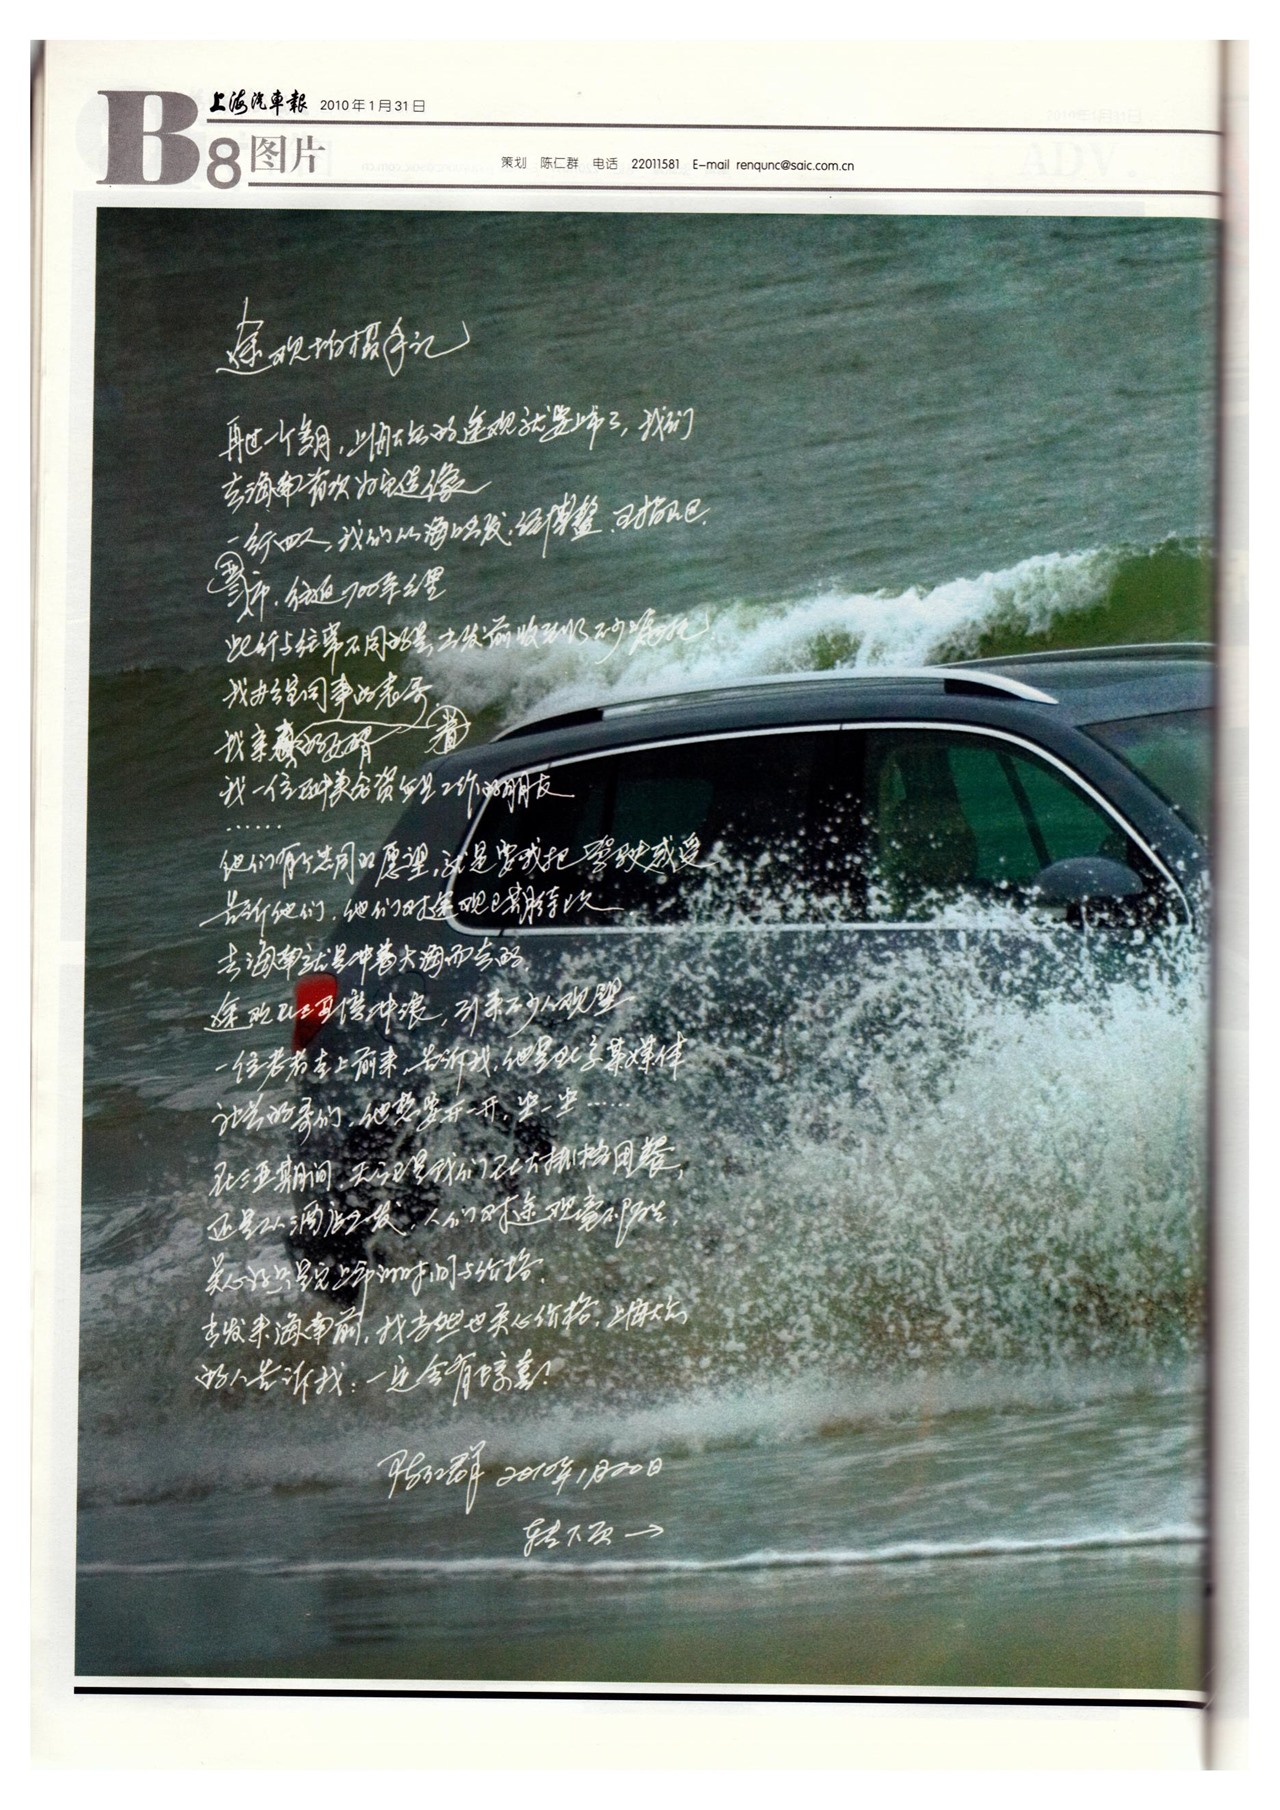 B8 图片
上海汽車報 2010年1月31日
策划 陈仁群 电话 22011581 E-mail renqunc@saic.com.cn
途观拍摄手记
再过一个多月，上海大众的途观就要上市了，我们
去海南首次为它造像
一行四人，我们从海口出发，经博鳌、
三亚市，往返700余公里
此行与往常不同的是，出发前收到了不少嘱托：
我办公室同事的表哥
我亲戚的女婿
我一位在中美合资企业工作的朋友
……
他们有个共同的愿望，就是要我把驾驶感受
告诉他们，他们对途观已期待已久
去海南就是冲着大海而去的，
途观在三亚湾冲浪，引来不少人观望
一位老者走上前来，告诉我，他是北京某媒体
社长的哥们，他想要开一开，坐一坐……
在三亚期间，无论是我们在大排档用餐，
还是从酒店出发，人们对途观毫不陌生，
关心的只是它上市的时间与价格，
出发来海南前，我当然也关心价格，上海大众
的人告诉我：一定会有惊喜！
陈仁群 2010年1月20日
转下页→